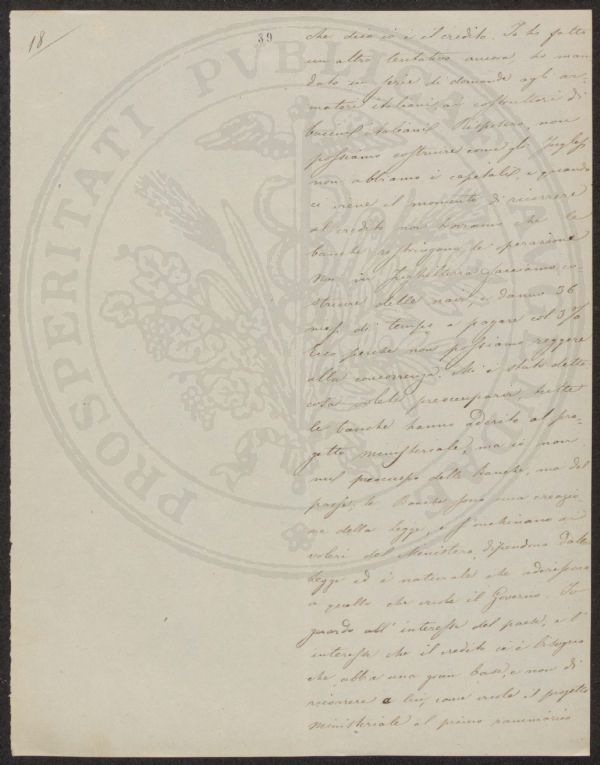 18
39
che dico io è il credito. Io ho fatto
un altro tentativo ancora, ho man
dato in serie di domande agli ar-
matori italiani, ai costruttori di
bacini italiani. Risposero, non
possiamo costruire come gli Inglesi
non abbiamo i capitali, e quando
ci viene il momento di ricorrere
al credito noi troviamo che le
banche restringono le operazioni
Noi in Inghilterra facciamo co-
struire delle navi, e danno 36
mesi di tempo a pagare col 3%
Ecco perchè non possiamo reggere
alla concorrenza. Mi è stato detto
cosa volete preoccuparvi, tutte
le banche hanno aderito al pro-
getto ministeriale, ma io non
mi preoccupo delle banche, ma del
paese; le Banche sono una creazio
ne della legge, e s'inchinano ai
voleri del Ministero, dipendono dalla
legge ed è naturale che aderiscano
a quello che crede il Governo. Io
guardo all'interesse del paese, e l'
interesse che il credito io è bisogno
che abbia una gran base, e non di
ricorrere a lui, come crede il progetto
ministeriale al primo
PROSPERITATI PUBLICAE